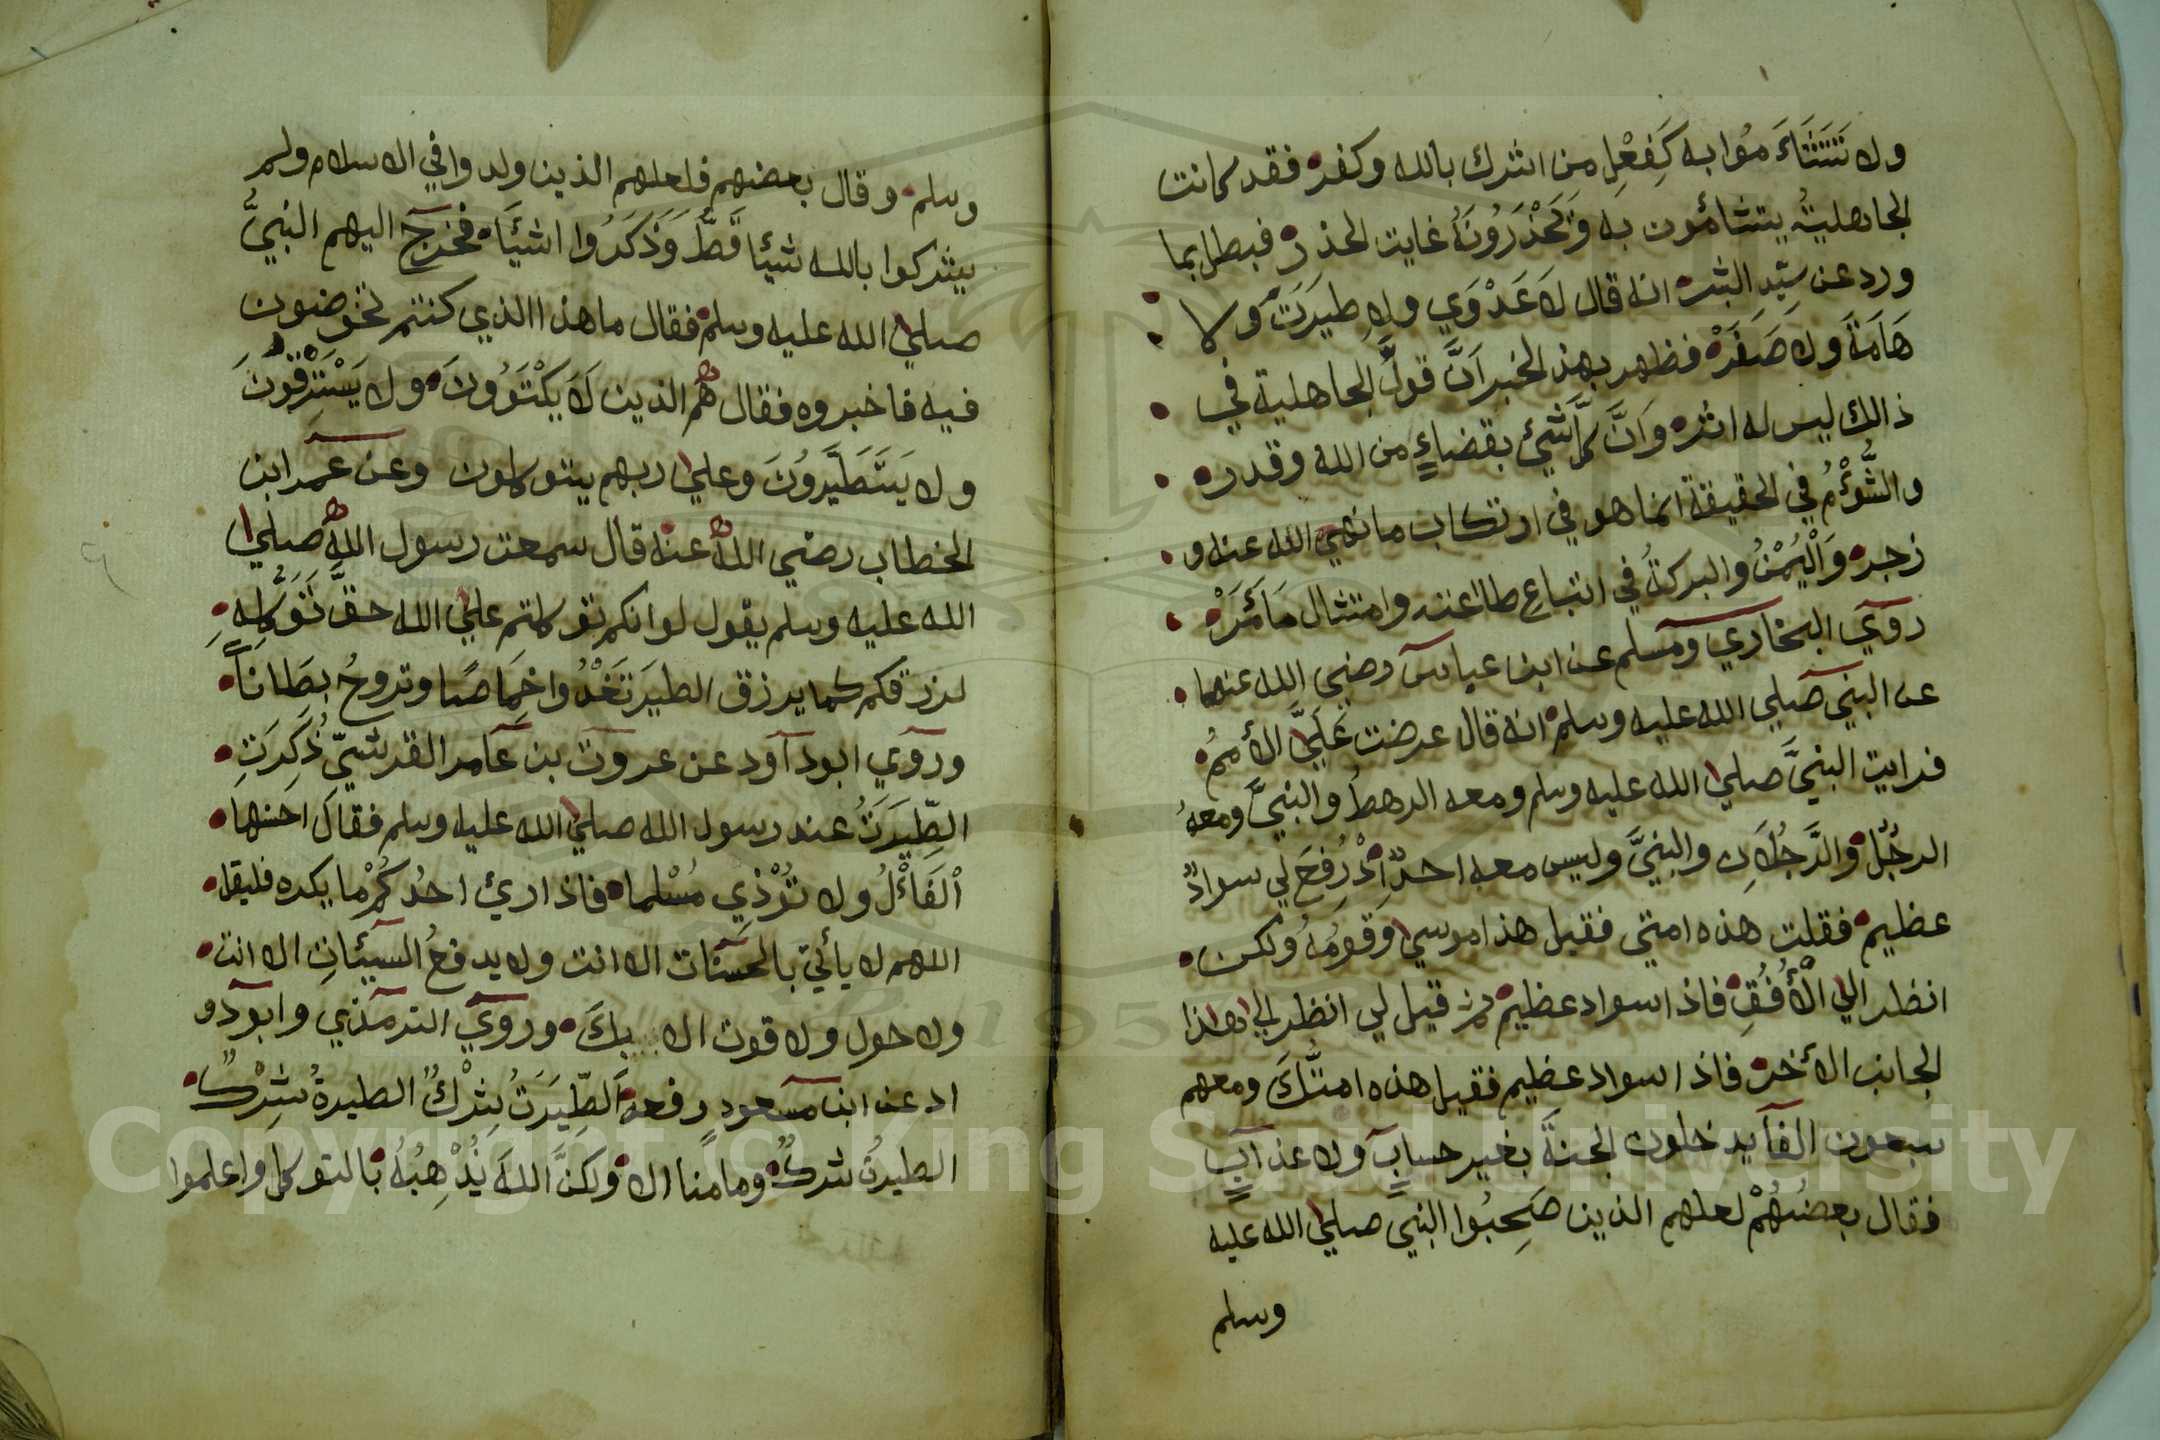 ولا تَتَشَاءَمُوا به كَفِعْلِ مِن اشرك بالله وكفر فقد كانت
الجاهليةُ يتشائمون به وَتَحْذَرُونَهُ غايت الحذر فبطل بما
ورد عن سَيِّدِ البشر انه قال لاَ عَدْوَي ولا طِيَرَتَ ولا
هَامَةَ ولا صَفَرْ فظهر بهذ الخبر اَنَّ قولَ الجاهلية في
ذالك ليس له اثر وَاَنَّ كلَّ شيْئٍ بقضاءٍ من الله وقدره
والشُّؤْمُ في الحقيقة انما هو في ارتكاب ما نهي الله عنه و
زجر وَالْيُمْنُ والبركةُ في اتباع طاعته وامتثال مَا أَمَرَ
روي البخاري ومسلم عن ابن عباس رضي الله عنهما
عن النبي صلي الله عليه وسلم انه قال عرضت عَلَيَّ الأُممُ
فرايت النبيَّ صلي الله عليه وسلم ومعه الرهطُ والنبيَّ ومعهُ
الرجُل والرَّجُلاَنِ والنبيَّ وليس معه احدٌ اِذْ رُفِعَ لي سوادٌ
عظيم فقلت هذه امتي فقيل هذا موسي وقومُهُ ولكن
انظر الي الْأُفُقِ فاذا سواد عظيم ثم قيل لي انظر الي هذا
الجانب الأخر فاذا سواد عظيم فقيل هذه امتُّكَ ومعهم
سبعون الفا يدخلون الجنةَ بغير حسابٍ ولا عذابٍ
فقال بعضُهُمْ لعلهم الذين صَحِبُوا النبيَ صلي الله عليه
وسلم
وسلم وقال بعضهم فلعلهم الذين ولدوا في الاسلام ولم
يشركوا بالله شيئا قَطُّ وَذَكَرُوا اشيَاَ فخرج اليهم النبيُّ
صلي الله عليه وسلم فقال ما هذا الذي كنتم تخوضون
فيه فاخبروه فقال هم الذين لاَ يَكْتَوُونَ ولا يَسْتَرْقُونَ
ولا يَتَطَيَّرُونَ وعلي ربهم يتوكلون وعن عمر ابن
الخطاب رضي الله عنه قال سمعت رسول الله صلي
الله عليه وسلم يقول لو انكم توكلتم علي الله حقَّ تَوَكُّلِهِ
لرزقكم كما يرزق الطيرَ تَغْدُوا خِمَاصًا وتروحُ بِطَانًا
وروي ابو دآود عن عروت بن عامر القرشيّ ذُكِرَتِ
الطِّيَرَتُ عند رسول الله صلي الله عليه وسلم فقال احسنها
اَلفَأْلُ ولا تُؤْذِي مُسْلما فاذا ارئ احدُكُمْ ما يكره فليقل
اللهم لا يأتي بالحسنات الا انت ولا يدفعُ السيئاتِ الا انت
ولا حول ولا قوت الا بِكَ وروي الترمذي وابو دو
اد عن ابن مسعود رفعه اَلطِّيَرَتُ شِرْكٌ الطيرةُ شِرْكٌ
الطيرتُ شركٌ وما منا الا ولكنَّ اللهَ يُذْهِبُهُ بالتوكل واعلموا
Copyright © King Saud University
1957